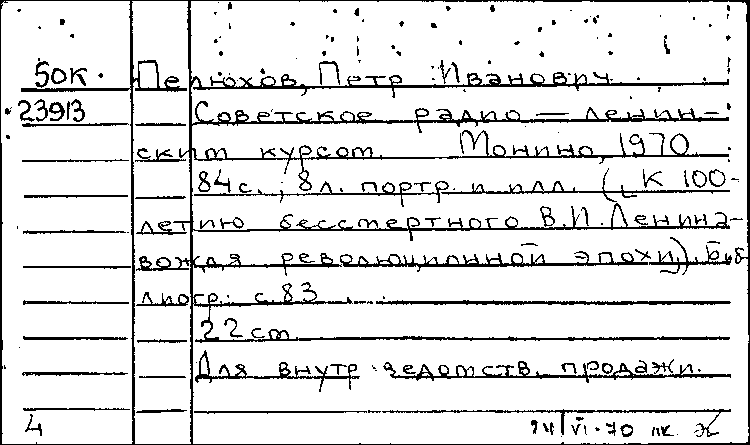 50к. Пелюхов, Петр Иванович
23913 Советское радио — ленин-
ским курсом. Монино, 1970.
84с., 8л. портр. и илл. (К 100-
летию бессмертного В.И. Ленина-
вождя революционной эпохи). Биб-
лиогр.: с.83
22 см
Для внутр. ведомств. продажи.
4 /VI-70 пк